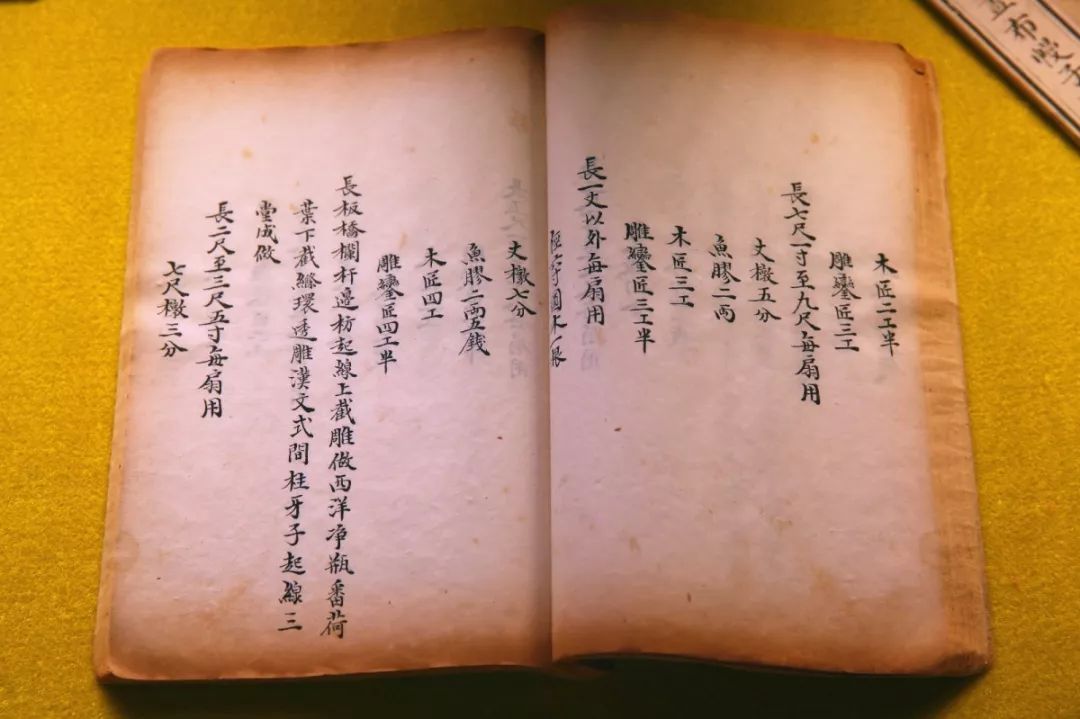 木匠二工半
雕鑾匠三工
長七尺一寸至九尺每扇用
丈橔五分
魚膠二両
木匠三工
雕鑾匠三工半
長一丈以外每扇用
丈橔七分
魚膠二両五錢
木匠四工
雕鑾匠四工半
長板橋欄杆邊枋起線上截雕做西洋净瓶番荷
葉下截絛環透雕漢文式間柱牙子起線三
堂成做
長二尺至三尺五寸每扇用
七尺橔三分
布幔子